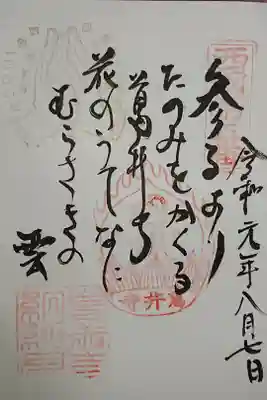 令和元年八月七日
参るより
たのみをかくる
葛井寺
花のうてなに
むらさきの
雲
葛井寺